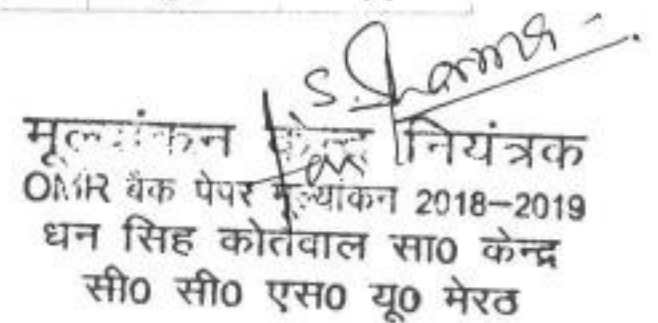 S. Sharma
मूल्यांकन केन्द्र नियंत्रक
OMR बैक पेपर मूल्यांकन 2018–2019
धन सिह कोतवाल सा0 केन्द्र
सी0 सी0 एस0 यू0 मेरठ